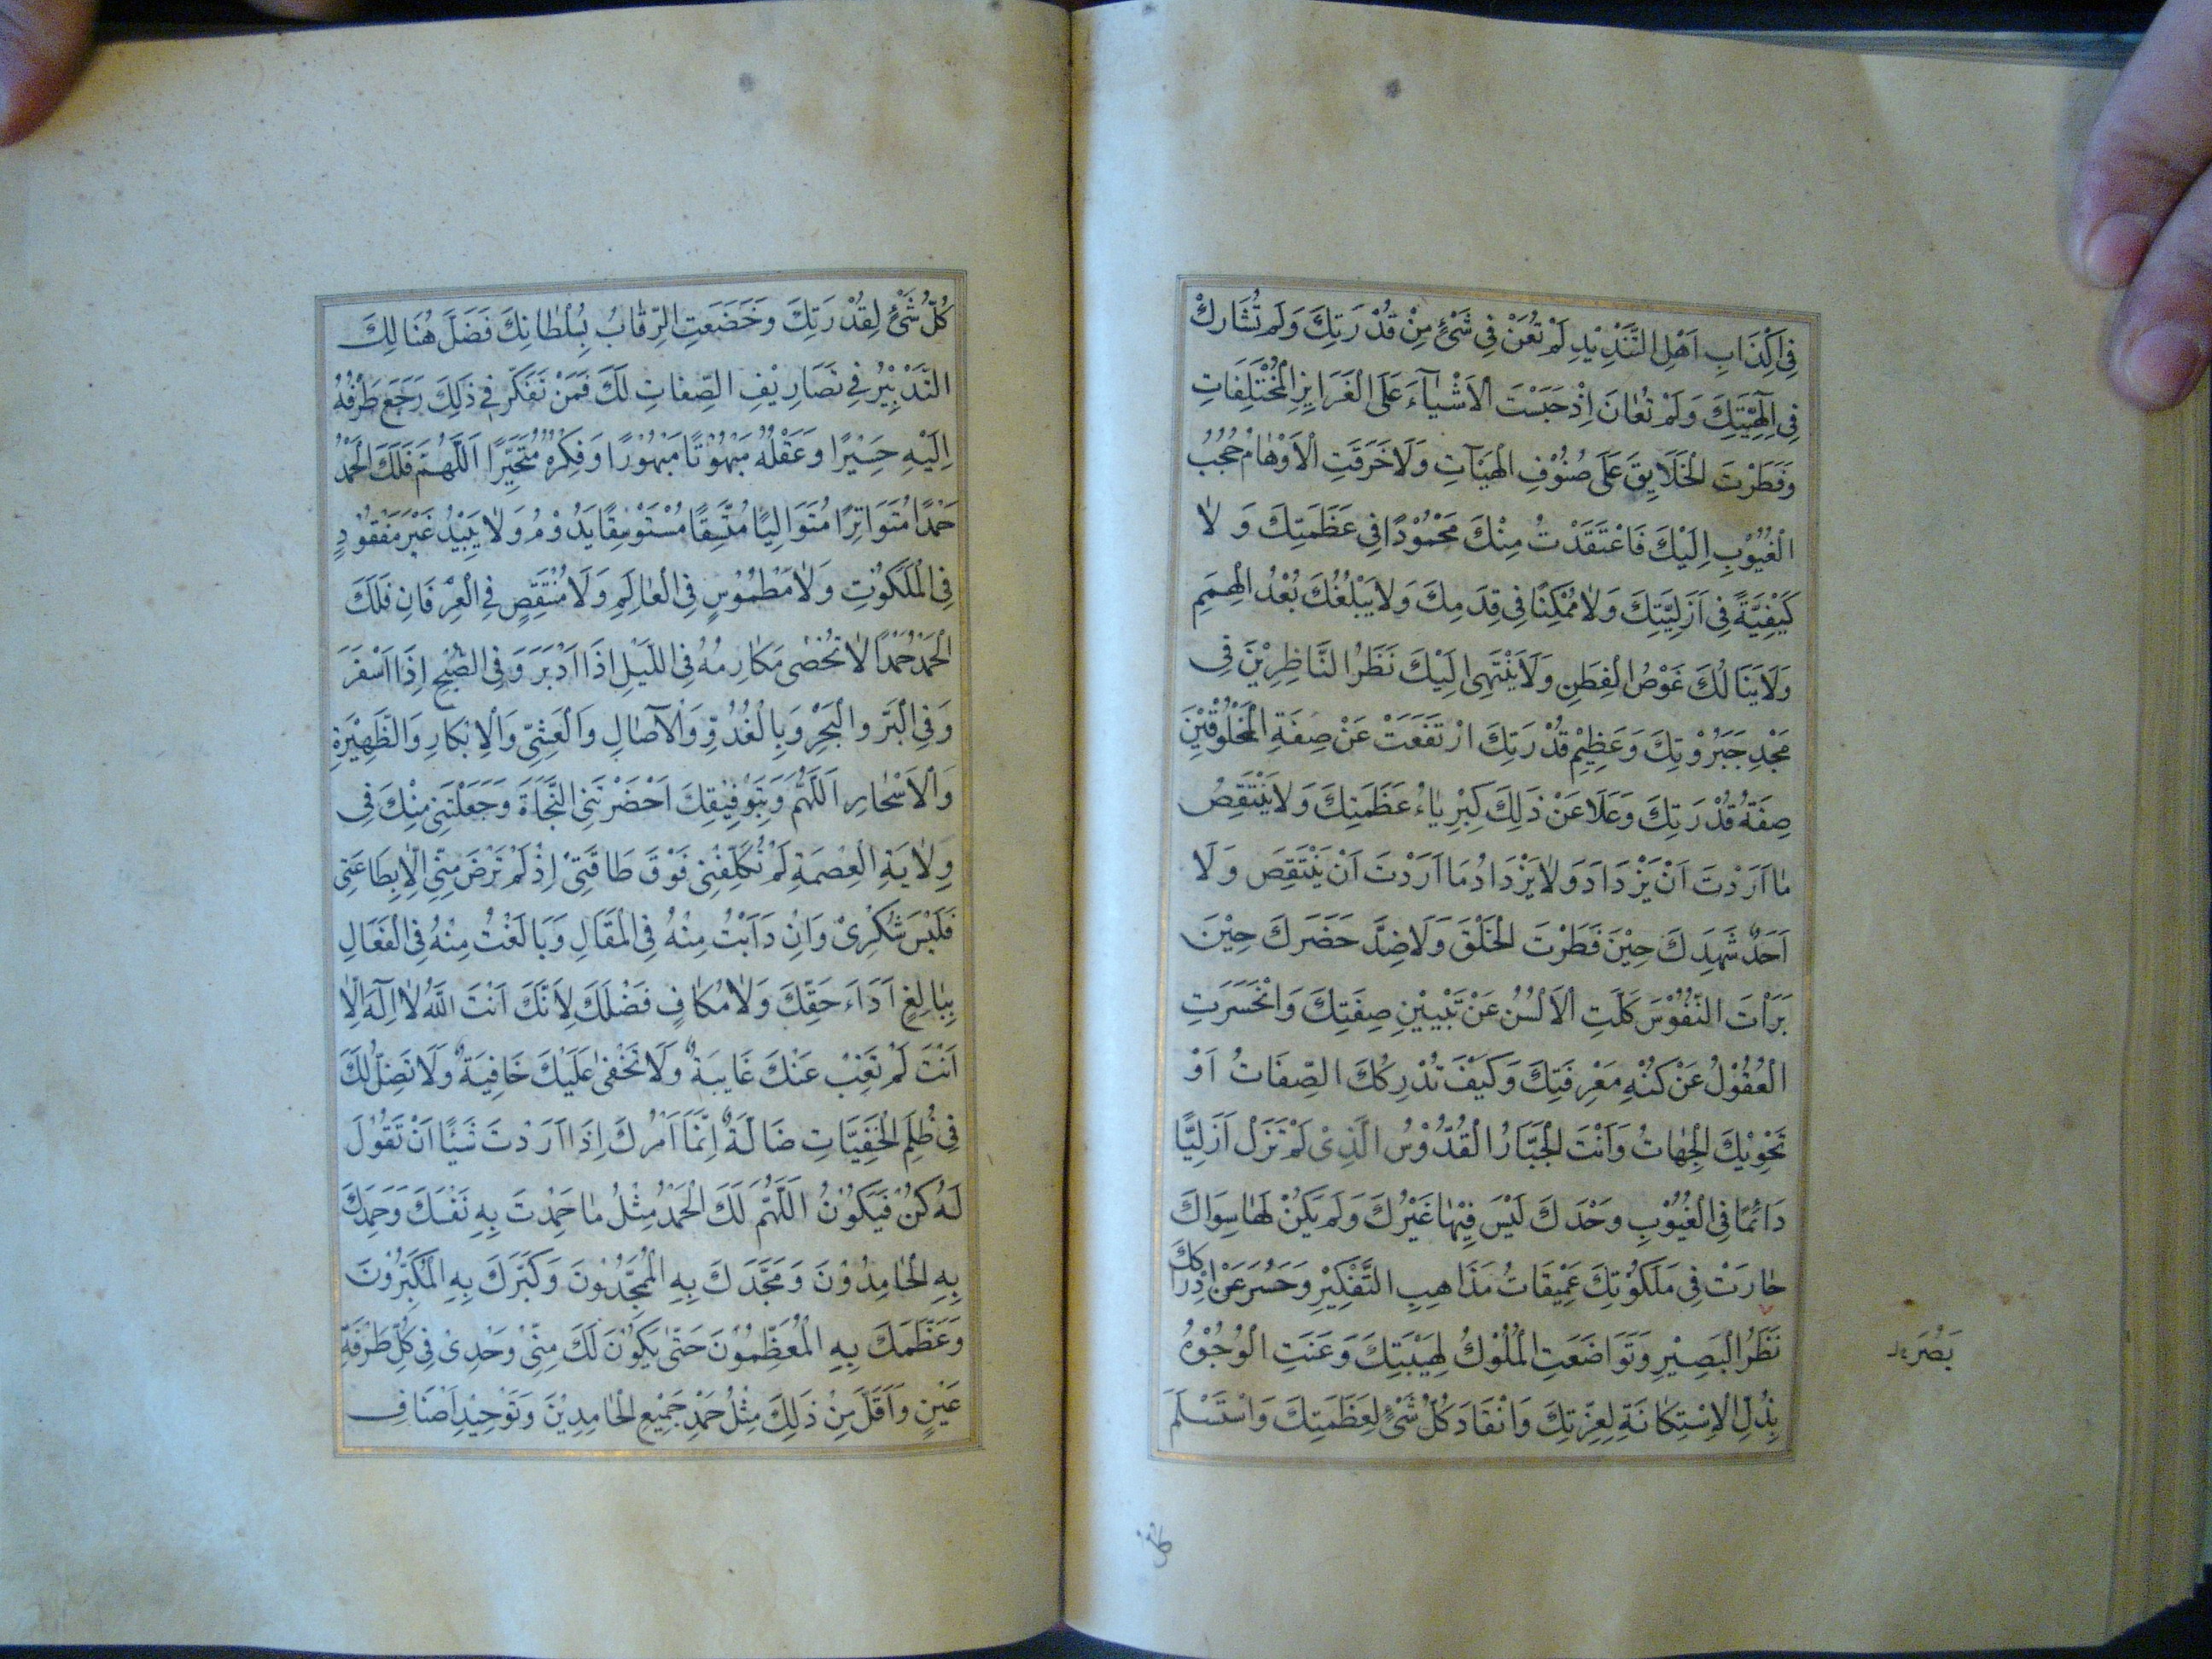 فِي اَكْذَابِ اَهْلِ التَّنْدِيْدِ لَمْ تُعَنْ فِي شَيْءٍ مِنْ قُدْرَتِكَ وَلَمْ تُشَارَكْ
فِي اِلٰهِيَّتِكَ وَلَمْ تُعَانَ اِذْ حَبَسْتَ الْاَشْيَآءَ عَلَى الْغَرَايِزِ الْمُخْتَلِفَاتِ
وَفَطَرْتَ الْخَلَايِقَ عَلَى صُنُوْفِ الْهَيَئآتِ وَلَا خَرَقَتِ الْاَوْهَامُ حُجُبَ
الْغُيُوْبِ اِلَيْكَ فَاعْتَقَدْتُ مِنْكَ مَحْمُوْدًا فِي عَظَمَتِكَ وَلَا
كَيْفِيَّةً فِي اَزَلِيَّتِكَ وَلَا مُمْكِنًا فِي قِدَمِكَ وَلَا يَبْلُغُكَ بُعْدُ الْهِمَمِ
وَلَا يَنَالُكَ غَوْصُ الْفِطَنِ وَلَا يَنْتَهِي اِلَيْكَ نَظَرُ النَّاظِرِيْنَ فِي
مَجْدِ جَبَرُوْتِكَ وَعَظِيْمِ قُدْرَتِكَ ارْتَفَعَتْ عَنْ صِفَةِ الْمَخْلُوْقِيْنَ
صِفَةُ قُدْرَتِكَ وَعَلَا عَنْ ذَلِكَ كِبْرِيَاءُ عَظَمَتِكَ وَلَا يَنْتَقِصُ
مَا اَرَدْتَ اَنْ يَزْدَادَ وَلَا يَزْدَادُ مَا اَرَدْتَ اَنْ يَنْتَقِصَ وَلَا
اَحَدٌ شَهِدَكَ حِيْنَ فَطَرْتَ الْخَلْقَ وَلَا ضِدَّ حَضَرَكَ حِيْنَ
بَرَأْتَ النُّفُوْسَ كَلَّتِ الْاَلْسُنُ عَنْ تَبْيِيْنِ صِفَتِكَ وَانْحَسَرَتِ
الْعُقُوْلُ عَنْ كُنْهِ مَعْرِفَتِكَ وَكَيْفَ تُدْرِكُكَ الصِّفَاتُ اَوْ
تَحْوِيْكَ الْجِهَاتُ وَاَنْتَ الْجَبَّارُ الْقُدُّوْسُ الَّذِيْ لَمْ تَزَلْ اَزَلِيًّا
دَائِمًا فِي الْغُيُوْبِ وَحْدَكَ لَيْسَ فِيْهَا غَيْرُكَ وَلَمْ يَكُنْ لَهَا سِوَاكَ
حَارَتْ فِي مَلَكُوْتِكَ عَمِيْقَاتُ مَذَاهِبِ التَّفْكِيْرِ وَحَسُرَ عَنْ اِدْرَاكِكَ
نَظَرُ الْبَصِيْرِ وَتَوَاضَعَتِ الْمُلُوْكُ لِهَيْبَتِكَ وَعَنَتِ الْوُجُوْهُ
بَصَرُ
بِذُلِّ الْاِسْتِكَانَةِ لِعِزَّتِكَ وَانْقَادَ كُلُّ شَيْءٍ لِعَظَمَتِكَ وَاسْتَسْلَمَ
كل شئ
كُلُّ شَيْءٍ لِقُدْرَتِكَ وَخَضَعَتِ الرِّقَابُ بِسُلْطَانِكَ فَضَلَّ هُنَالِكَ
التَّدْبِيْرُ فِي تَصَارِيْفِ الصِّفَاتِ لَكَ فَمَنْ تَفَكَّرَ فِي ذَلِكَ رَجَعَ طَرْفُهُ
اِلَيْهِ حَسِيْرًا وَعَقْلُهُ مَبْهُوْتًا مَبْهُوْرًا وَفِكْرُهُ مُتَحَيِّرًا اَللّٰهُمَّ فَلَكَ الْحَمْدُ
حَمْدًا مُتَوَاتِرًا مُتَوَالِيًا مُتَّسِقًا مُسْتَوْسِقًا يَدُوْمُ وَلَا يَبِيْدُ غَيْرَ مَفْقُوْدٍ
فِي الْمَلَكُوْتِ وَلَا مَطْمُوْسٍ فِي الْعَالَمِ وَلَا مُنْتَقِصٍ فِي الْعِرْفَانِ فَلَكَ
الْحَمْدُ حَمْدًا لَا تُحْصٰى مَكَارِمُهُ فِي اللَّيْلِ اِذَا اَدْبَرَ وَفِي الصُّبْحِ اِذَا اَسْفَرَ
وَفِي الْبَرِّ وَالْبَحْرِ وَبِالْغُدُوِّ وَالْآصَالِ وَالْعَشِيِّ وَالْاِبْكَارِ وَالظَّهِيْرَةِ
وَالْاَسْحَارِ اَللّٰهُمَّ وَبِتَوْفِيْقِكَ اَحْضَرْتَنِي النَّجَاةَ وَجَعَلْتَنِي مِنْكَ فِي
وِلَايَةِ الْعِصْمَةِ لَمْ تُكَلِّفْنِي فَوْقَ طَاقَتِي اِذْ لَمْ تَرْضَ مِنِّي اِلَّا بِطَاعَتِي
فَلَيْسَ شُكْرِيْ وَاِنْ دَاَبْتُ مِنْهُ فِي الْمَقَالِ وَبَالَغْتُ مِنْهُ فِي الْفَعَالِ
بِبَالِغٍ اَدَاءَ حَقِّكَ وَلَا مُكَافٍ فَضْلَكَ لِاَنَّكَ اَنْتَ اللّٰهُ لَا اِلٰهَ اِلَّا
اَنْتَ لَمْ تَغِبْ عَنْكَ غَايِبَةٌ وَلَا تَخْفٰى عَلَيْكَ خَافِيَةٌ وَلَا تَضِلُّ لَكَ
فِي ظُلَمِ الْخَفِيَّاتِ ضَالَّةٌ اِنَّمَا اَمْرُكَ اِذَا اَرَدْتَ شَيْئًا اَنْ تَقُوْلَ
لَهُ كُنْ فَيَكُوْنُ اَللّٰهُمَّ لَكَ الْحَمْدُ مِثْلُ مَا حَمِدْتَ بِهِ نَفْسَكَ وَحَمِدَكَ
بِهِ الْحَامِدُوْنَ وَمَجَّدَكَ بِهِ الْمُمَجِّدُوْنَ وَكَبَّرَكَ بِهِ الْمُكَبِّرُوْنَ
وَعَظَّمَكَ بِهِ الْمُعَظِّمُوْنَ حَتّٰى يَكُوْنَ لَكَ مِنِّيْ وَحْدِيْ فِي كُلِّ طَرْفَةِ
عَيْنٍ وَاَقَلَّ مِنْ ذَلِكَ مِثْلُ حَمْدِ جَمِيْعِ الْحَامِدِيْنَ وَتَوْحِيْدِ اَصْنَافِ